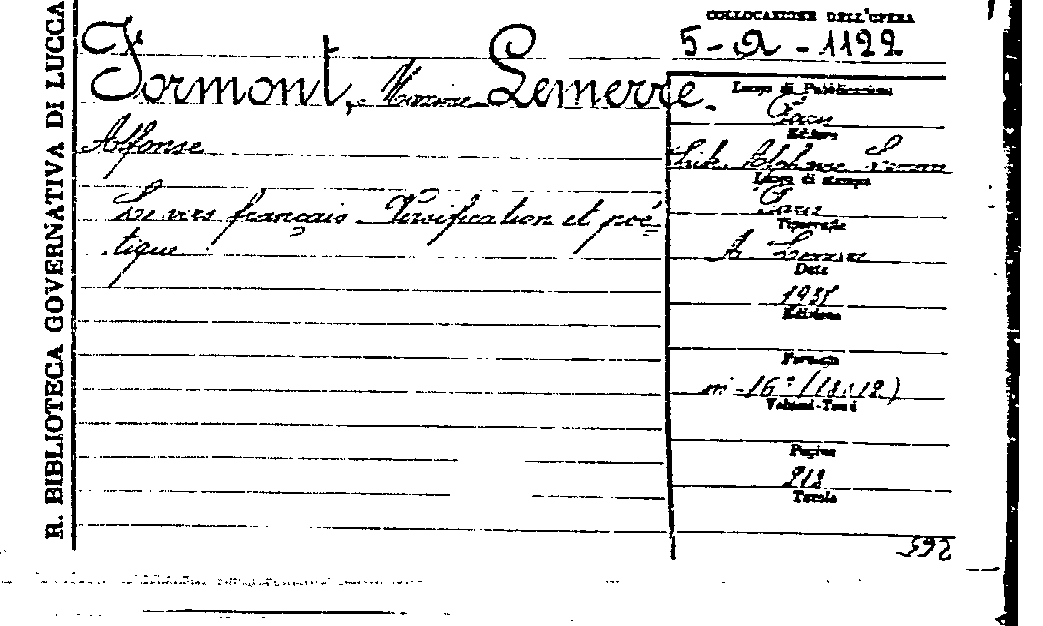 R. BIBLIOTECA GOVERNATIVA DI LUCCA
COLLOCAZIONE DELL'OPERA
5-A-1122
Formont, Lemerre.
Alfonse
Le vers français. Versification et poé=
tique
Luogo di Pubblicazione
Paris
Editore
Lib. Alphonse Lemerre
Luogo di stampa
Paris
Tipografia
A. Lemerre
Data
Edizione
Formato
in-16° (18x12)
Volumi-Tomi
Pagine
Tavole
592